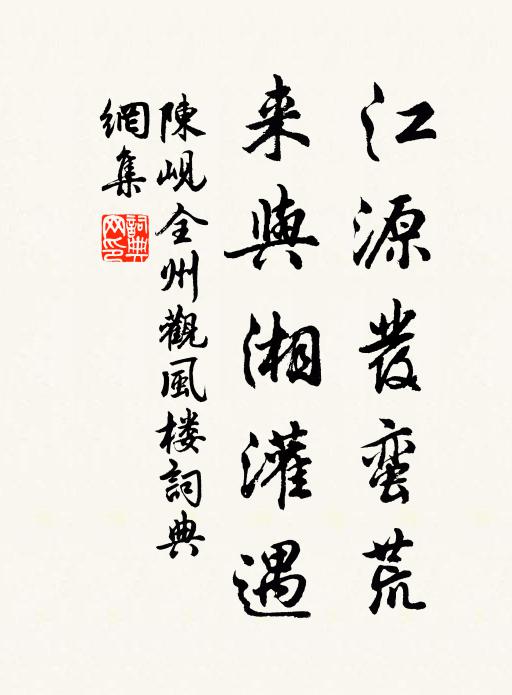 江源發蛮荒
来與湘灌遇
陳峴全州觀風楼詞典
網集
詞典
网印